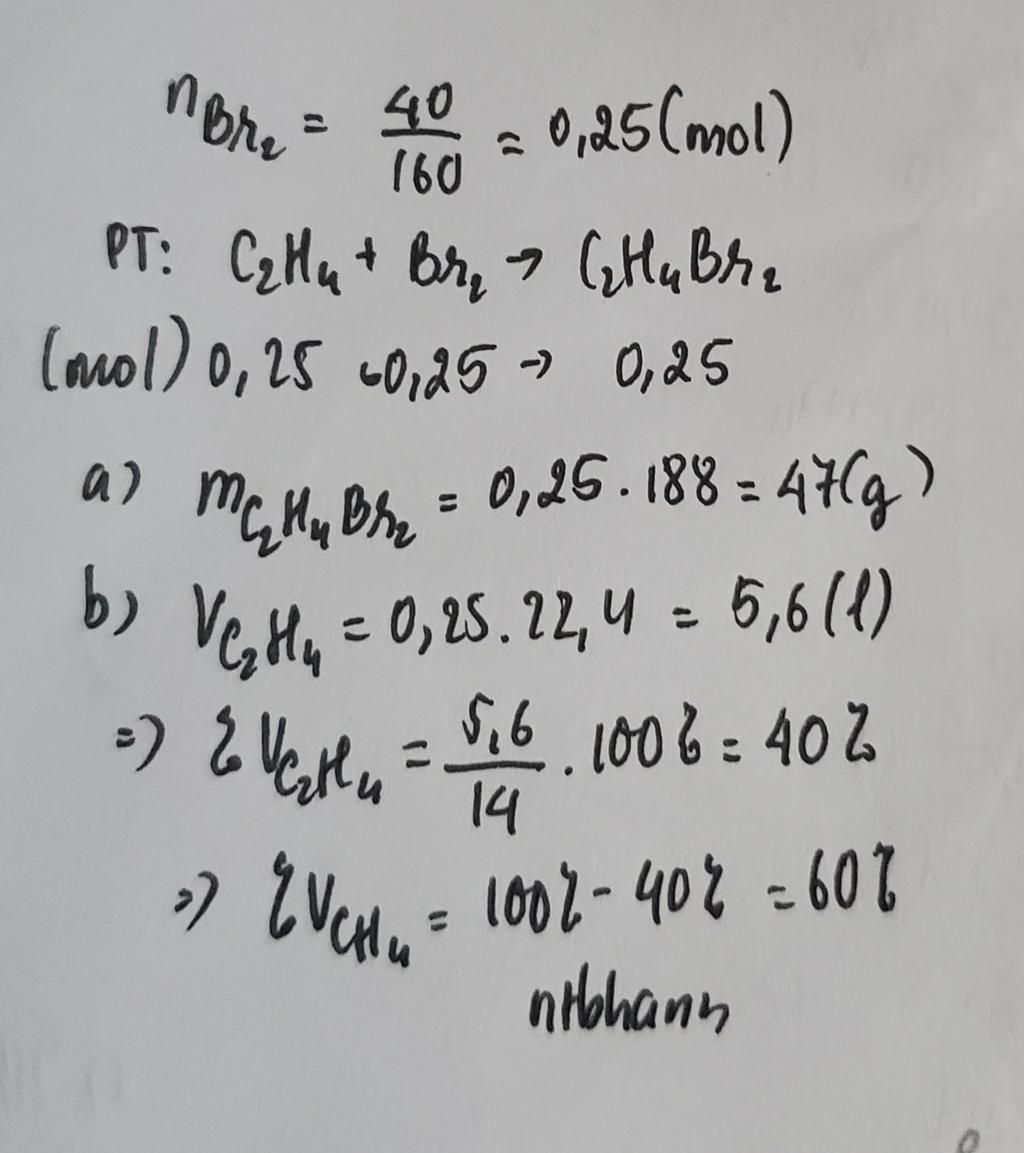 nBr₂ = 40/160 = 0,25(mol)
PT: C₂H₄ + Br₂ → C₂H₄Br₂
(mol) 0,25 ←0,25 → 0,25
a) mC₂H₄Br₂ = 0,25.188 = 47(g)
b) VC₂H₄ = 0,25.22,4 = 5,6(l)
=) %VC₂H₄ = 5,6/14 . 100% = 40%
=) %VCH₄ = 100% - 40% = 60%